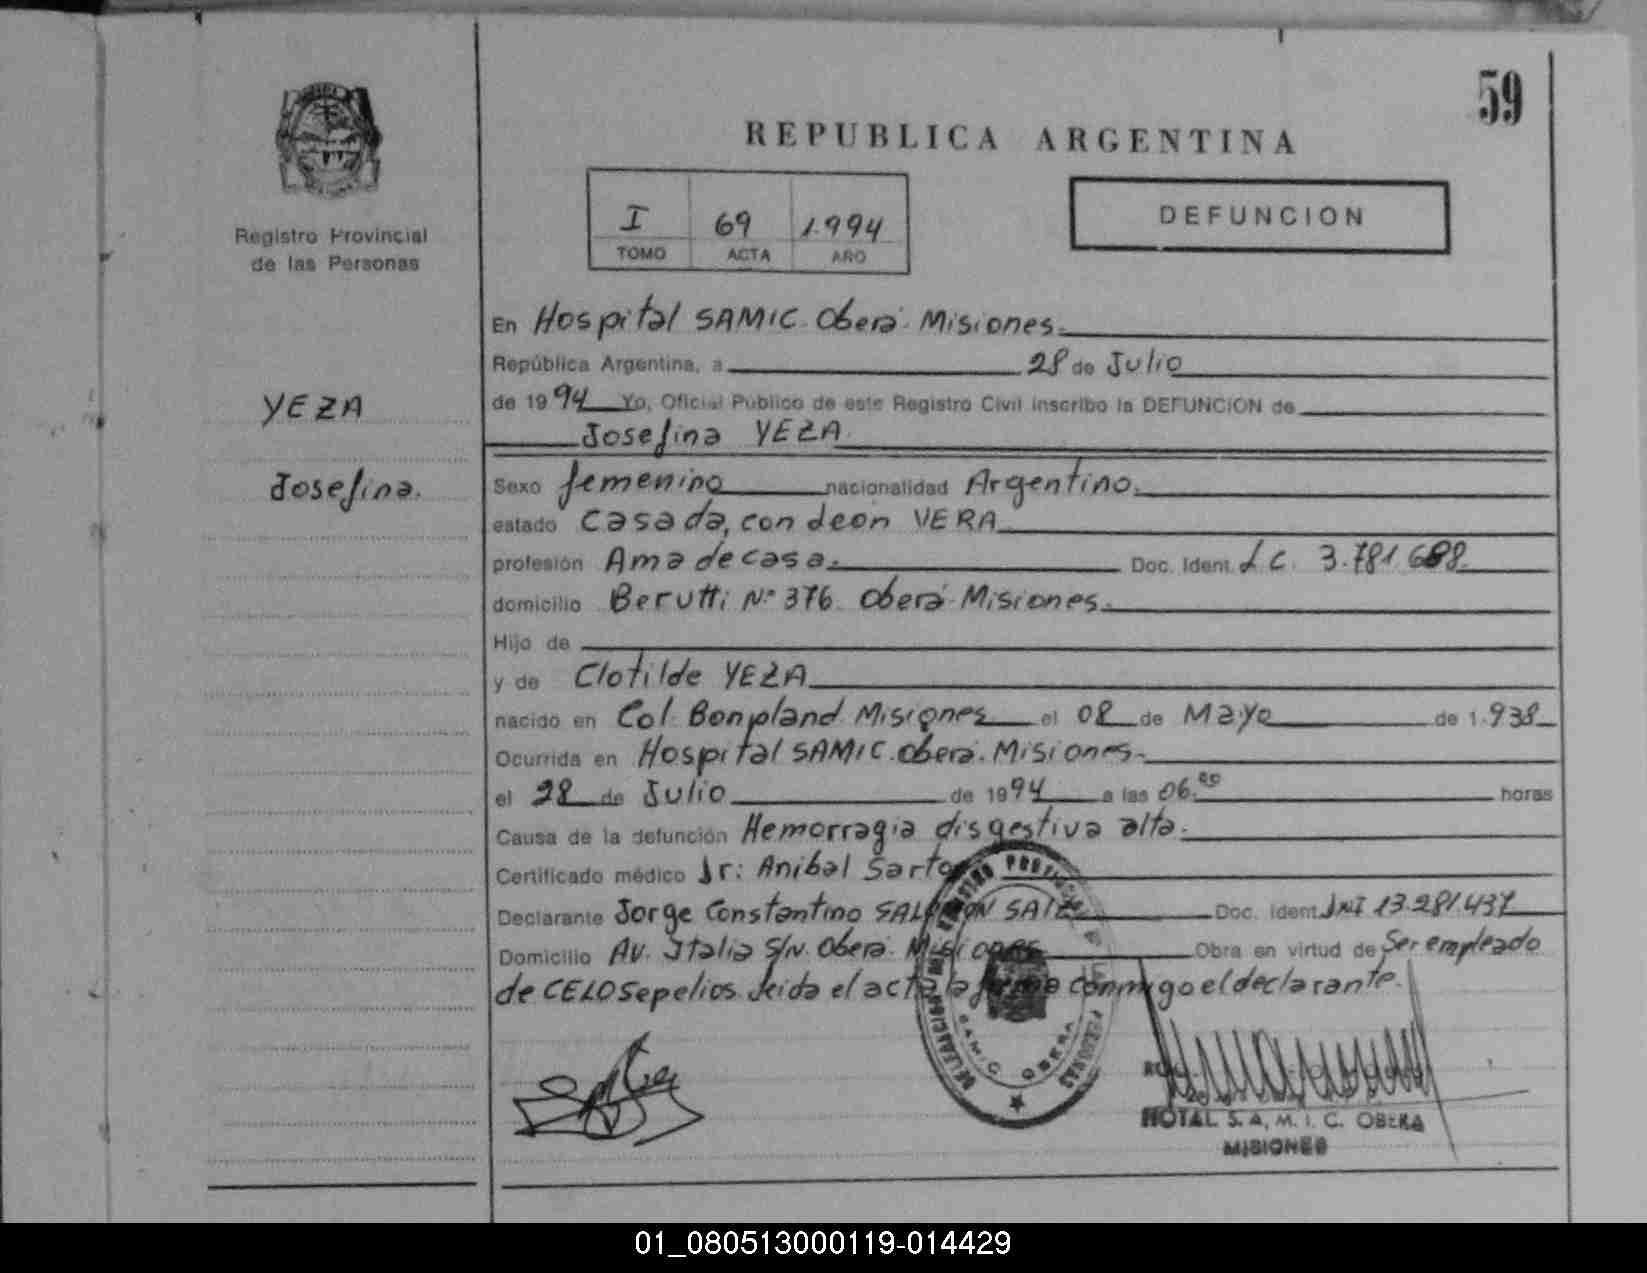 59
REPUBLICA ARGENTINA
I 69 1.994
TOMO ACTA AÑO
DEFUNCION
Registro Provincial
de las Personas
YEZA
Josefina.
En Hospital SAMIC Oberá Misiones.
República Argentina, a 28 de Julio
de 1994 Yo, Oficial Público de este Registro Civil inscribo la DEFUNCION de
Josefina YEZA
Sexo femenino nacionalidad Argentino.
estado Casada, con Leon VERA
profesión Ama de casa. Doc. Ident. L C. 3.781.688.
domicilio Berutti Nº 376 Oberá Misiones.
Hijo de
y de Clotilde YEZA
nacido en Col. Bonpland Misiones el 08 de Mayo de 1.938
Ocurrida en Hospital SAMIC Oberá. Misiones.
el 28 de Julio de 1994 a las 06.00 horas
Causa de la defunción Hemorragia disgestiva alta.
Certificado médico Dr: Anibal Sarto
Declarante Jorge Constantino Doc. Ident. DNI 13.281.437
Domicilio Av. Italia S/N. Oberá. Misiones Obra en virtud de Ser empleado
de CELO Sepelios. Leida el acta la firma conmigo el declarante.
SAMIC OBERA
S. A. M. I. C. OBERA
MISIONES
01_080513000119-014429